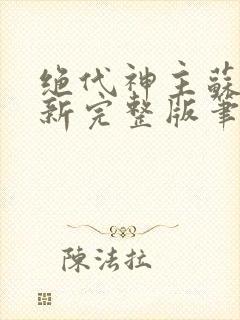 绝代神主蘇
新完整版筆
陳法拉